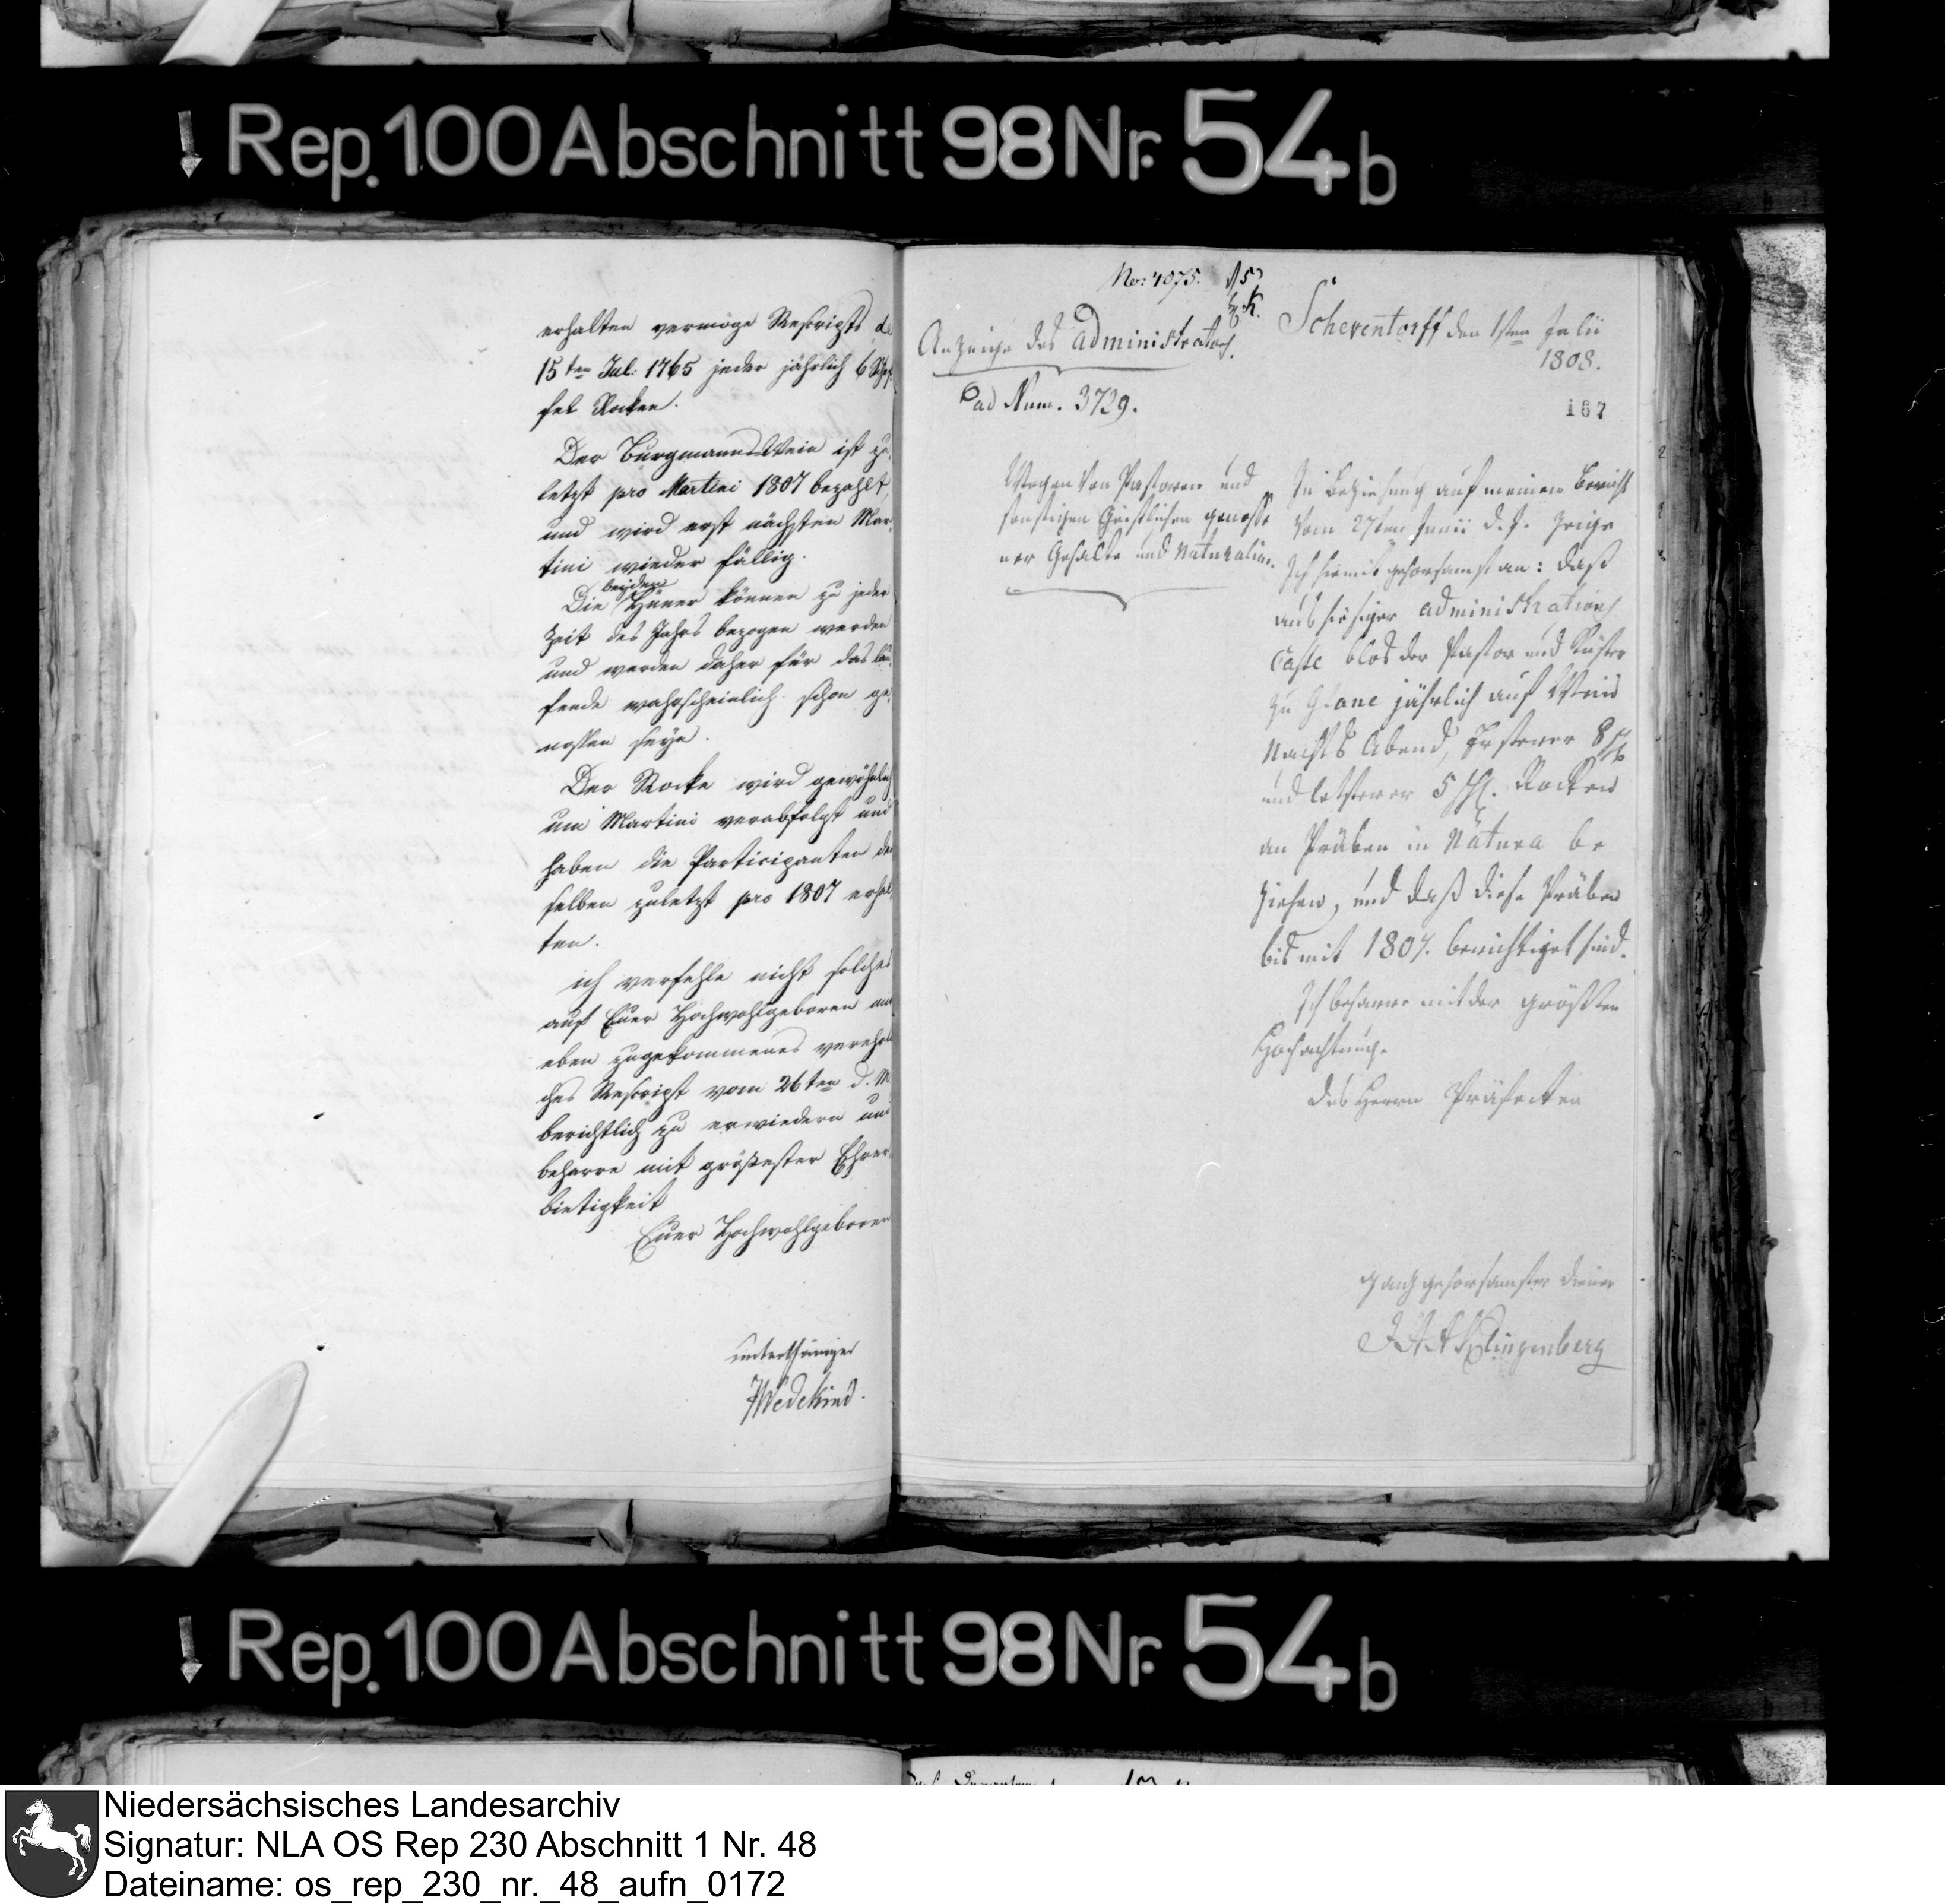 Rep. 100 Abschnitt 98 Nr. 54b
erhalten vermöge Rescripts de
15ten Jul. 1765 jeder jährlich 6 Schef
fel Rocken.
Der Burgmanns Wein ist zu
letzt pro Martini 1807 bezahlt,
und wird erst nächsten Mar
tini wieder fällig.
Die beiden Hüner können zu jeder
Zeit des Jahrs bezogen werden
und werden daher für das lau
fende wahrscheinlich schon ge
nossen seyn.
Der Rocke wird gewöhnlich
um Martini verabfolgt und
haben die Participanten den
selben zuletzt pro 1807 erhal
ten.
ich verfehle nicht solches
auf Euer Hochwohlgeboren mir
eben zugekommenes verehrli
ches Rescript vom 26ten d. M
berichtlich zu erwiedern und
beharre mit größester Ehrer
bietigkeit
Euer Hochwohlgeboren
unterthäniger
Wedekind.
Nro: 4075.
Scheventorff den 1sten Julii
1808.
Anzeige des Administrators.
ad Num. 3729.
167
Wegen von Pastoren und
sonstigen Geistlichen genosse
ner Gehalte und Naturalien.
In Beziehung auf meinen Bericht
vom 27ten Junii d. J. zeige
Ich hiemit gehorsamst an: daß
aus hiesiger Administrations
Casse blos der Pastor und Küster
zu Glane jährlich auf Wein
nachts Abend, Ersterer 8
und letzterer 5 Rocken
an Präben in Natura be
ziehen, und daß diese Präben
bis mit 1807. berichtiget sind.
Ich beharre mit der größten
Hochachtung.
Des Herrn Präfecten
ganz gehorsamster Diener
Klingenberg
Rep. 100 Abschnitt 98 Nr. 54b
Niedersächsisches Landesarchiv
Signatur: NLA OS Rep 230 Abschnitt 1 Nr. 48
Dateiname: os_rep_230_nr._48_aufn_0172